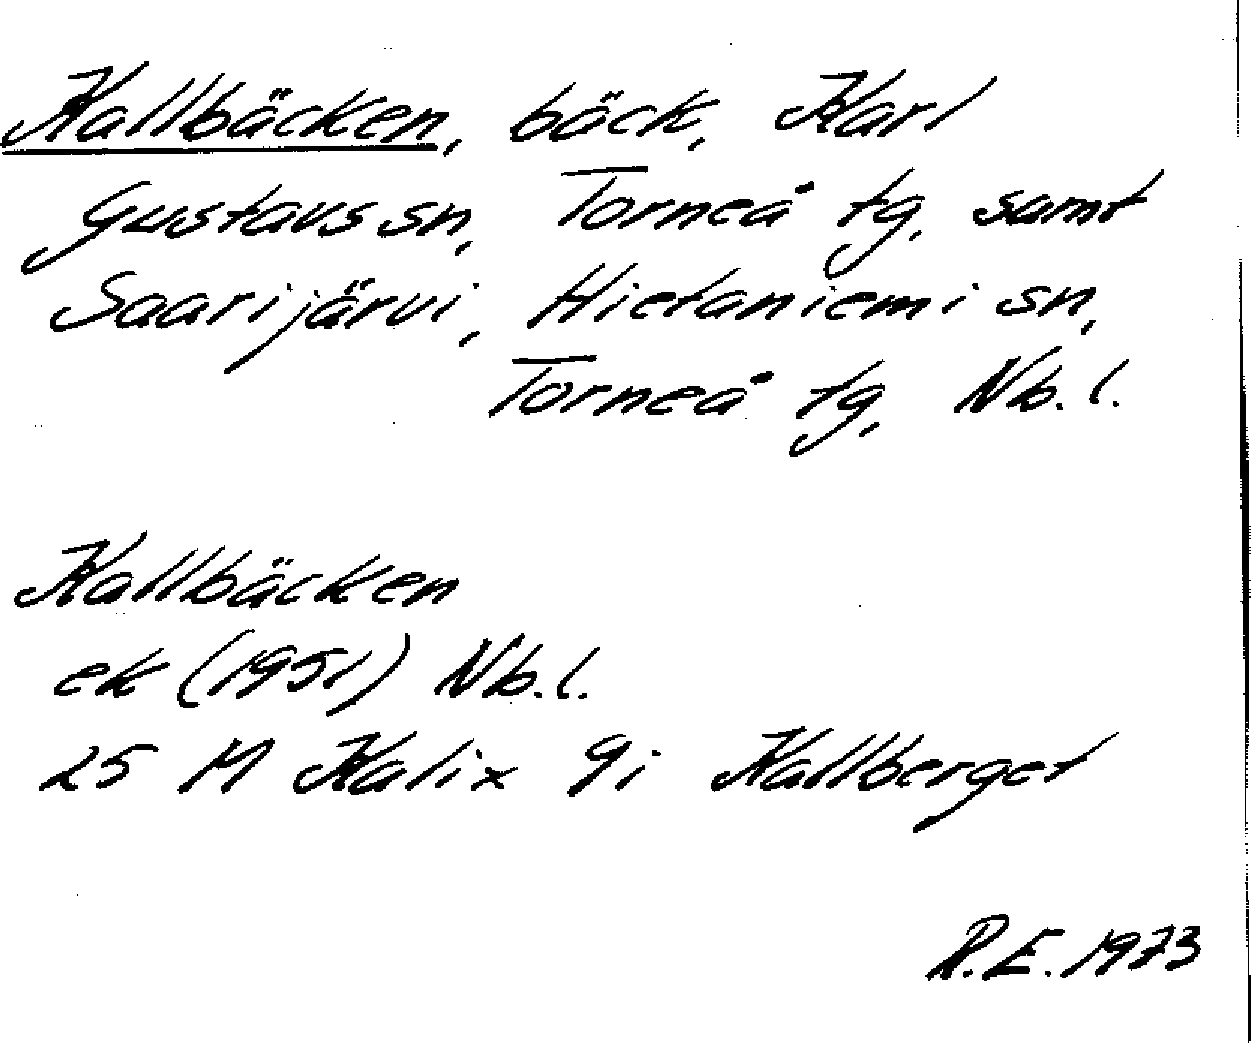 Kallbäcken, bäck, Karl
Gustavs sn, Torneå tg, samt
Saarijärvi, Hietaniemi sn,
Torneå tg, Nb. l.
Kallbäcken
ek (1951) Nb. l.
25 M Kalix 9i Kallberget
R.E. 1973